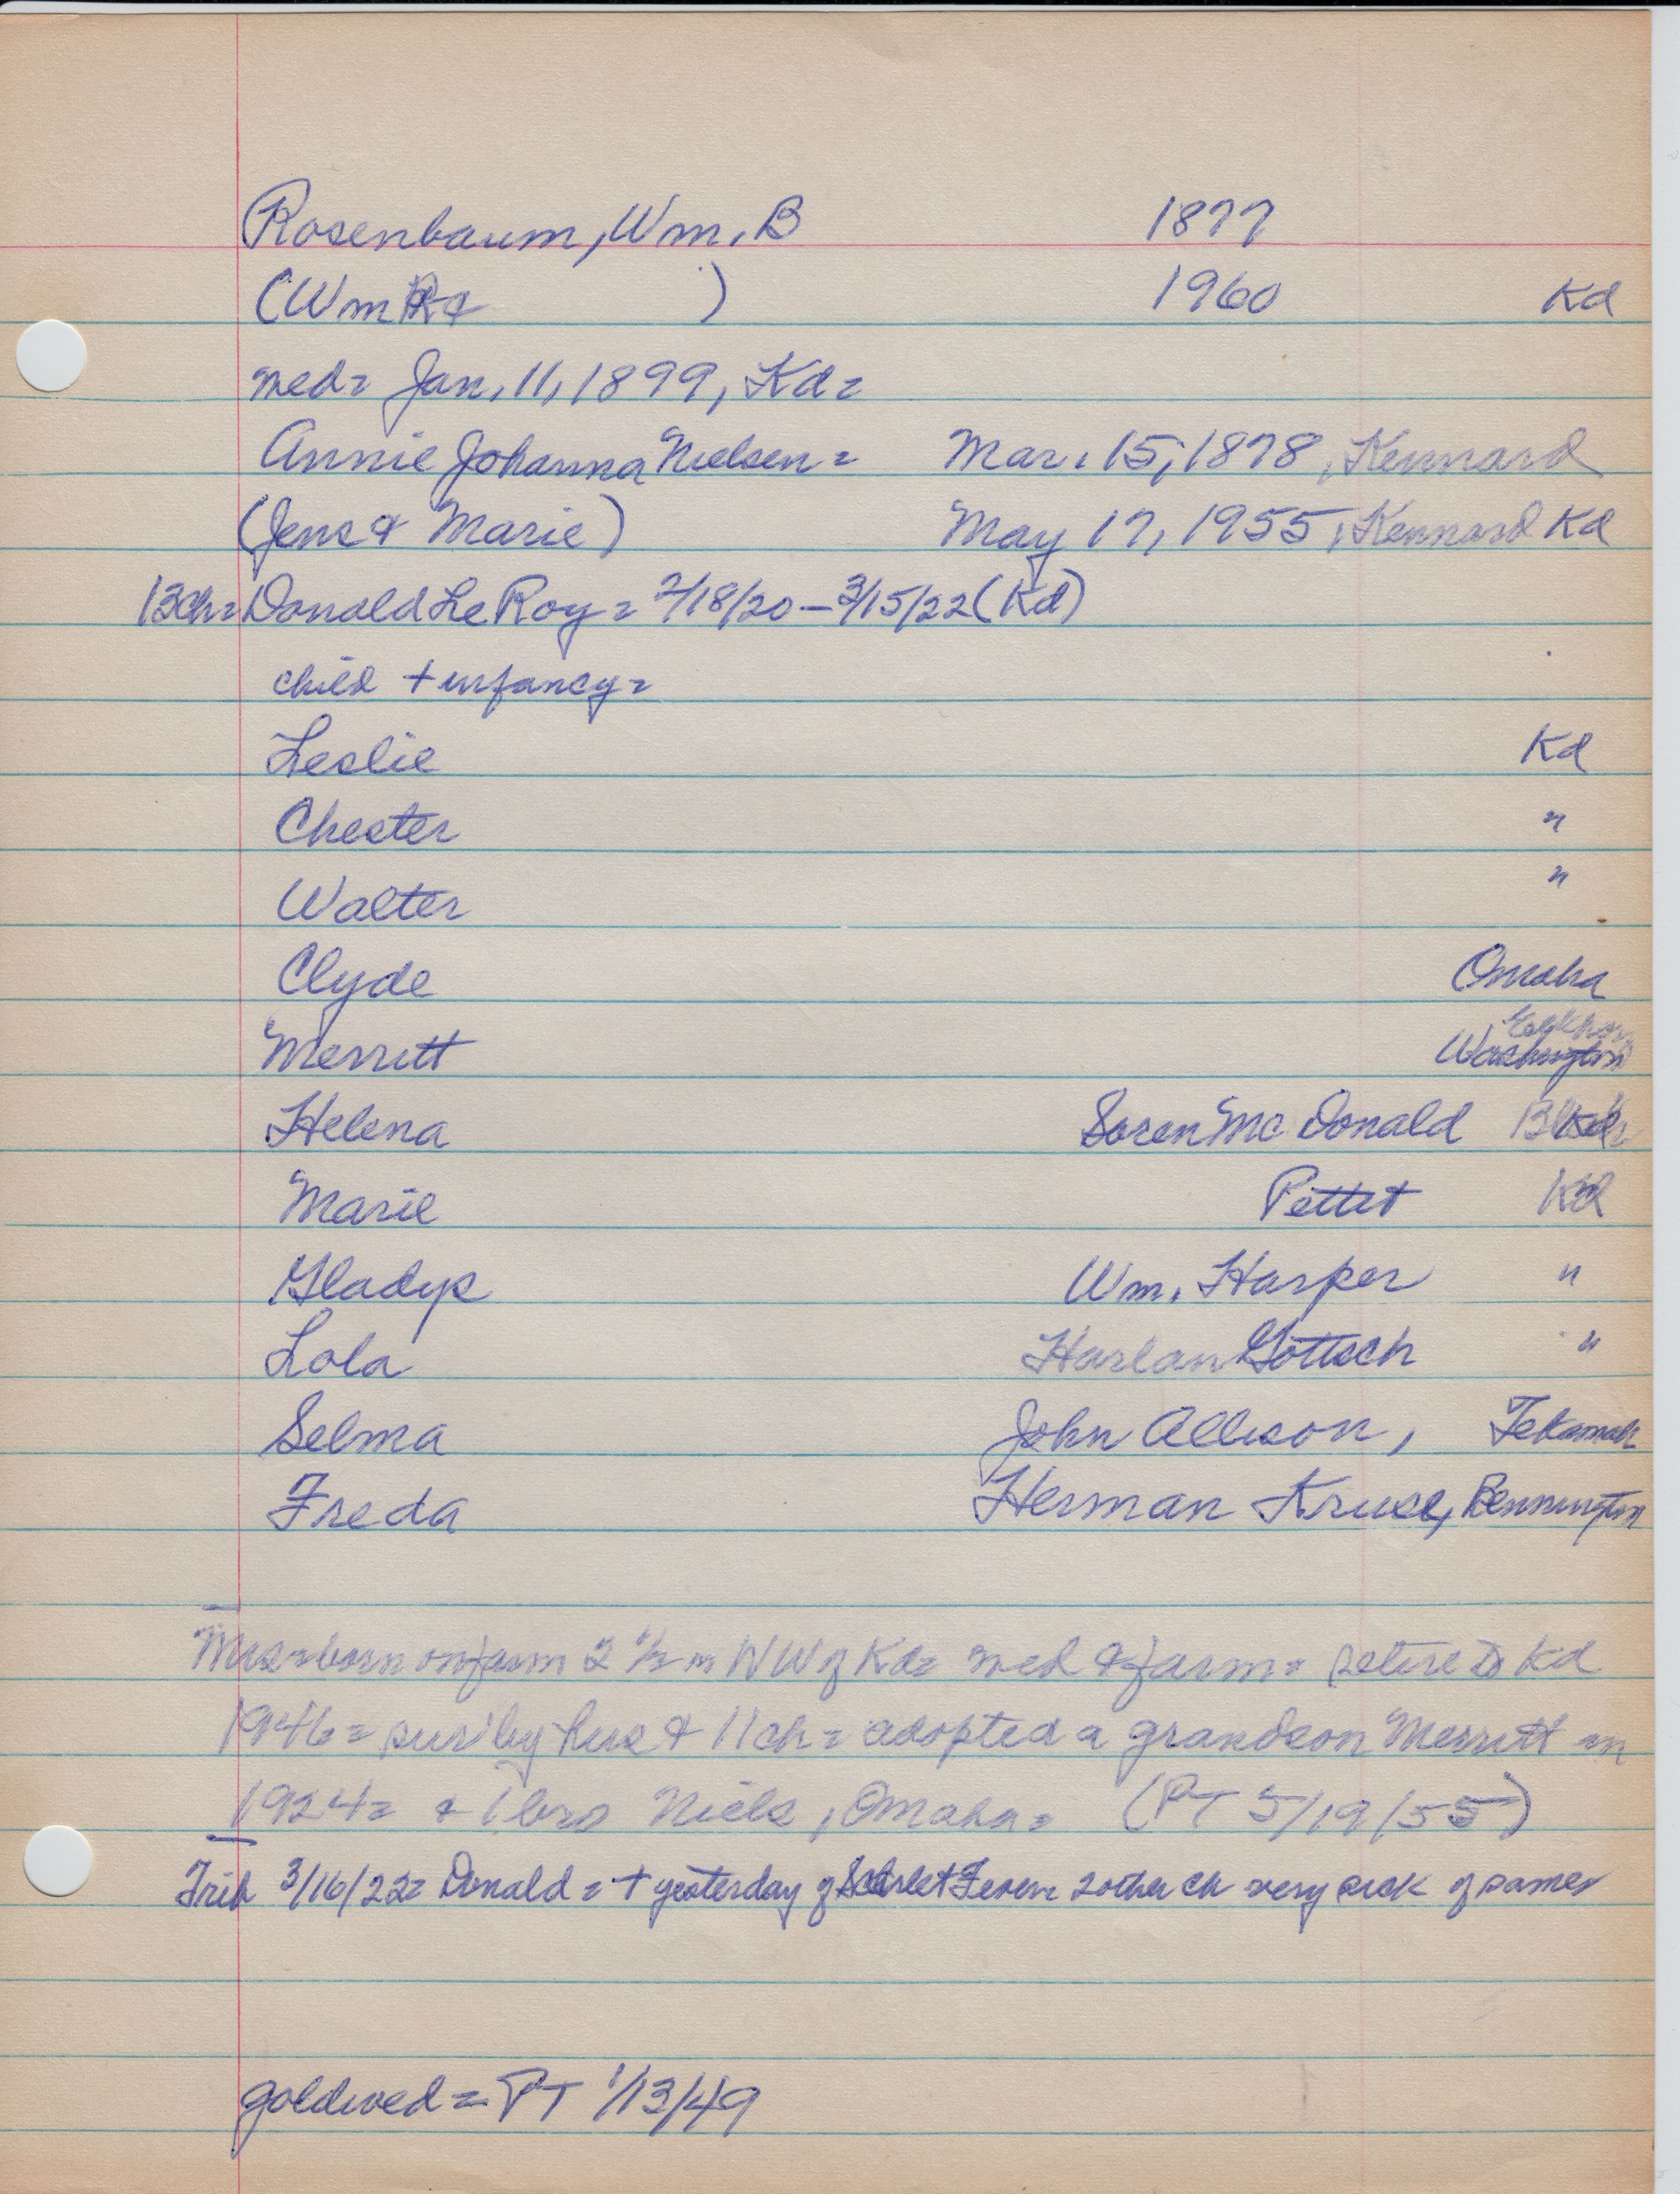 Rosenbaum, Wm. B 1877
(Wm & ) 1960 Kd
wed= Jan. 11, 1899, Kd=
Annie Johanna Nielsen= Mar. 15, 1878, Kennard
(Jens & Marie) May 17, 1955, Kennard Kd
13ch= Donald LeRoy= 2/18/20 - 3/15/22 (Kd)
child + infancy=
Leslie Kd
Chester "
Walter "
Clyde Omaha
Merritt Washington
Helena Soren McDonald
Marie Pettit Kd
Gladys Wm. Harper "
Lola Harlan Gottsch "
Selma John Allison, Tekamah
Freda Herman Kruse, Bennington
Mrs= born on farm 2 1/2 m NW of Kd= wed & farm= retire to Kd
1946= sur by hus & 11ch= adopted a grandson Merritt in
1924= & 1 bro Niels, Omaha= (PT 5/19/55)
Trib 3/16/22= Donald= + yesterday of Scarlet Fever= 2 other ch very sick of same=
goldwed= PT 1/13/49